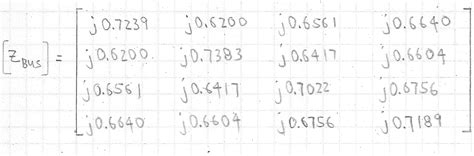 j0.7239 j0.6200 j0.6561 j0.6640
[Z_BUS] = j0.6200 j0.7383 j0.6417 j0.6604
j0.6561 j0.6417 j0.7022 j0.6756
j0.6640 j0.6604 j0.6756 j0.7189